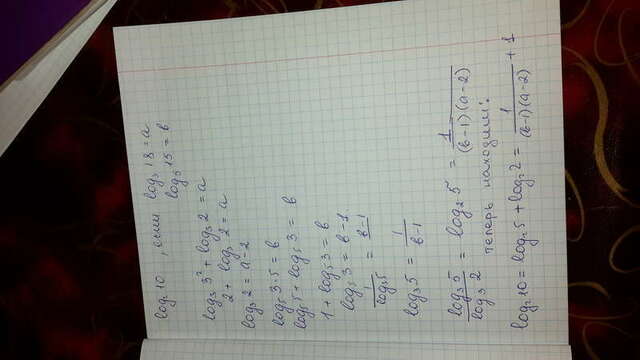 log₂ 10 , если log₃ 18 = a
log₅ 15 = b
log₃ 3² + log₃ 2 = a
2 + log₃ 2 = a
log₃ 2 = a - 2
log₅ 3·5 = b
log₅ 5 + log₅ 3 = b
1 + log₅ 3 = b
log₅ 3 = b - 1
1/log₃5 = b-1
log₃ 5 = 1/(b-1)
log₃ 5/log₃ 2 = log₂ 5 = 1/((b-1)(a-2))
теперь находим:
log₂ 10 = log₂ 5 + log₂ 2 = 1/((b-1)(a-2)) + 1